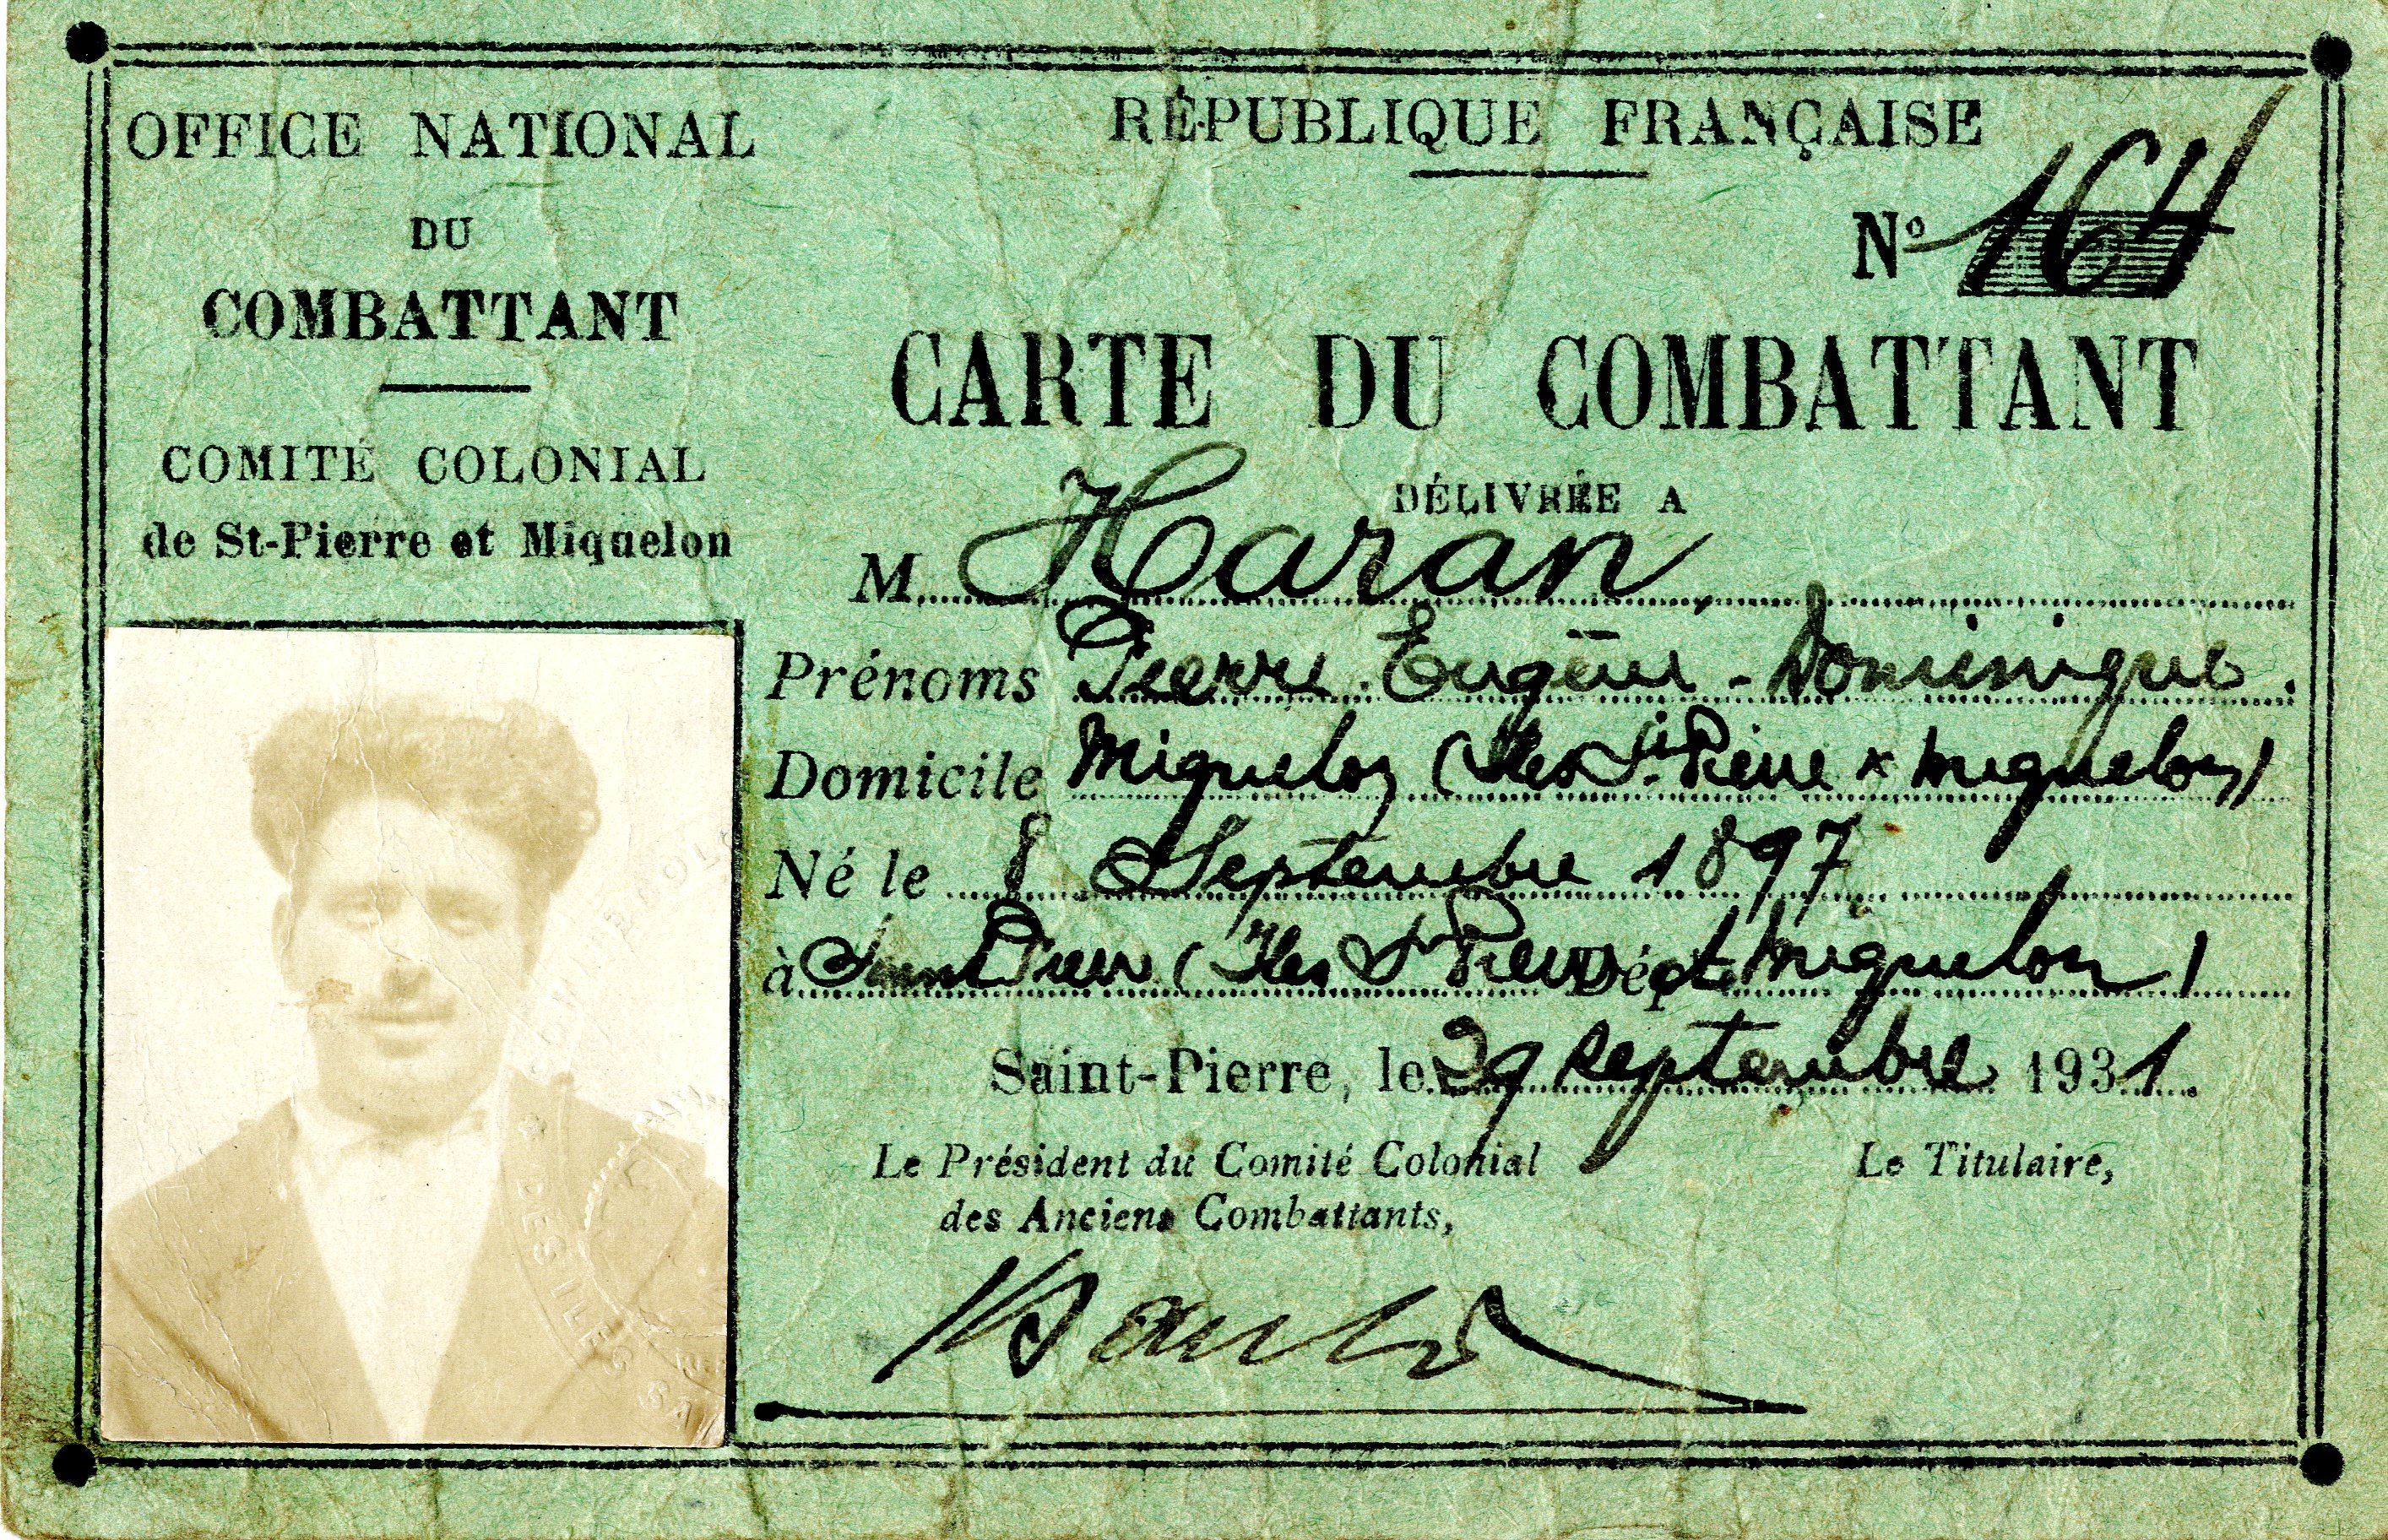 OFFICE NATIONAL
DU
COMBATTANT
COMITÉ COLONIAL
de St-Pierre et Miquelon
RÉPUBLIQUE FRANÇAISE
N° 164
CARTE DU COMBATTANT
DÉLIVRÉE A
M. Haran,
Prénoms Pierre - Eugène - Dominique.
Domicile Miquelon (Iles St Pierre & Miquelon)
Né le 8 Septembre 1897
à Saint Pierre (Iles St Pierre Dépt et Miquelon)
Saint-Pierre, le 29 Septembre 1931.
Le Président du Comité Colonial
des Anciens Combattants,
Le Titulaire,
COLO
DES ILES SA